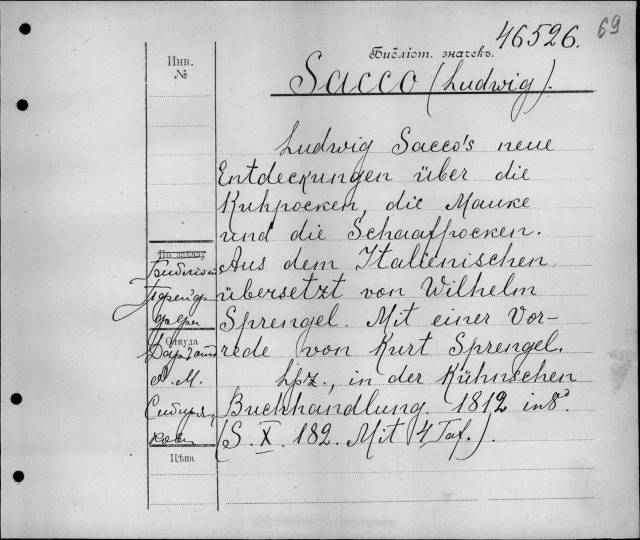 46526. 69
Библіот. значекъ.
Инв.
№
Sacco (Ludwig).
Ludwig Sacco's neue
Entdeckungen über die
Kuhpocken, die Mauke
und die Schaafpocken.
Aus dem Italienischen
übersetzt von Wilhelm
Sprengel. Mit einer Vor-
rede von Kurt Sprengel.
Lpz., in der Kühnschen
Buchhandlung. 1812 in 8°.
(S. X. 182. Mit 4 Taf.).
Откуда
А. М.
Сибиря
кова
Цѣна